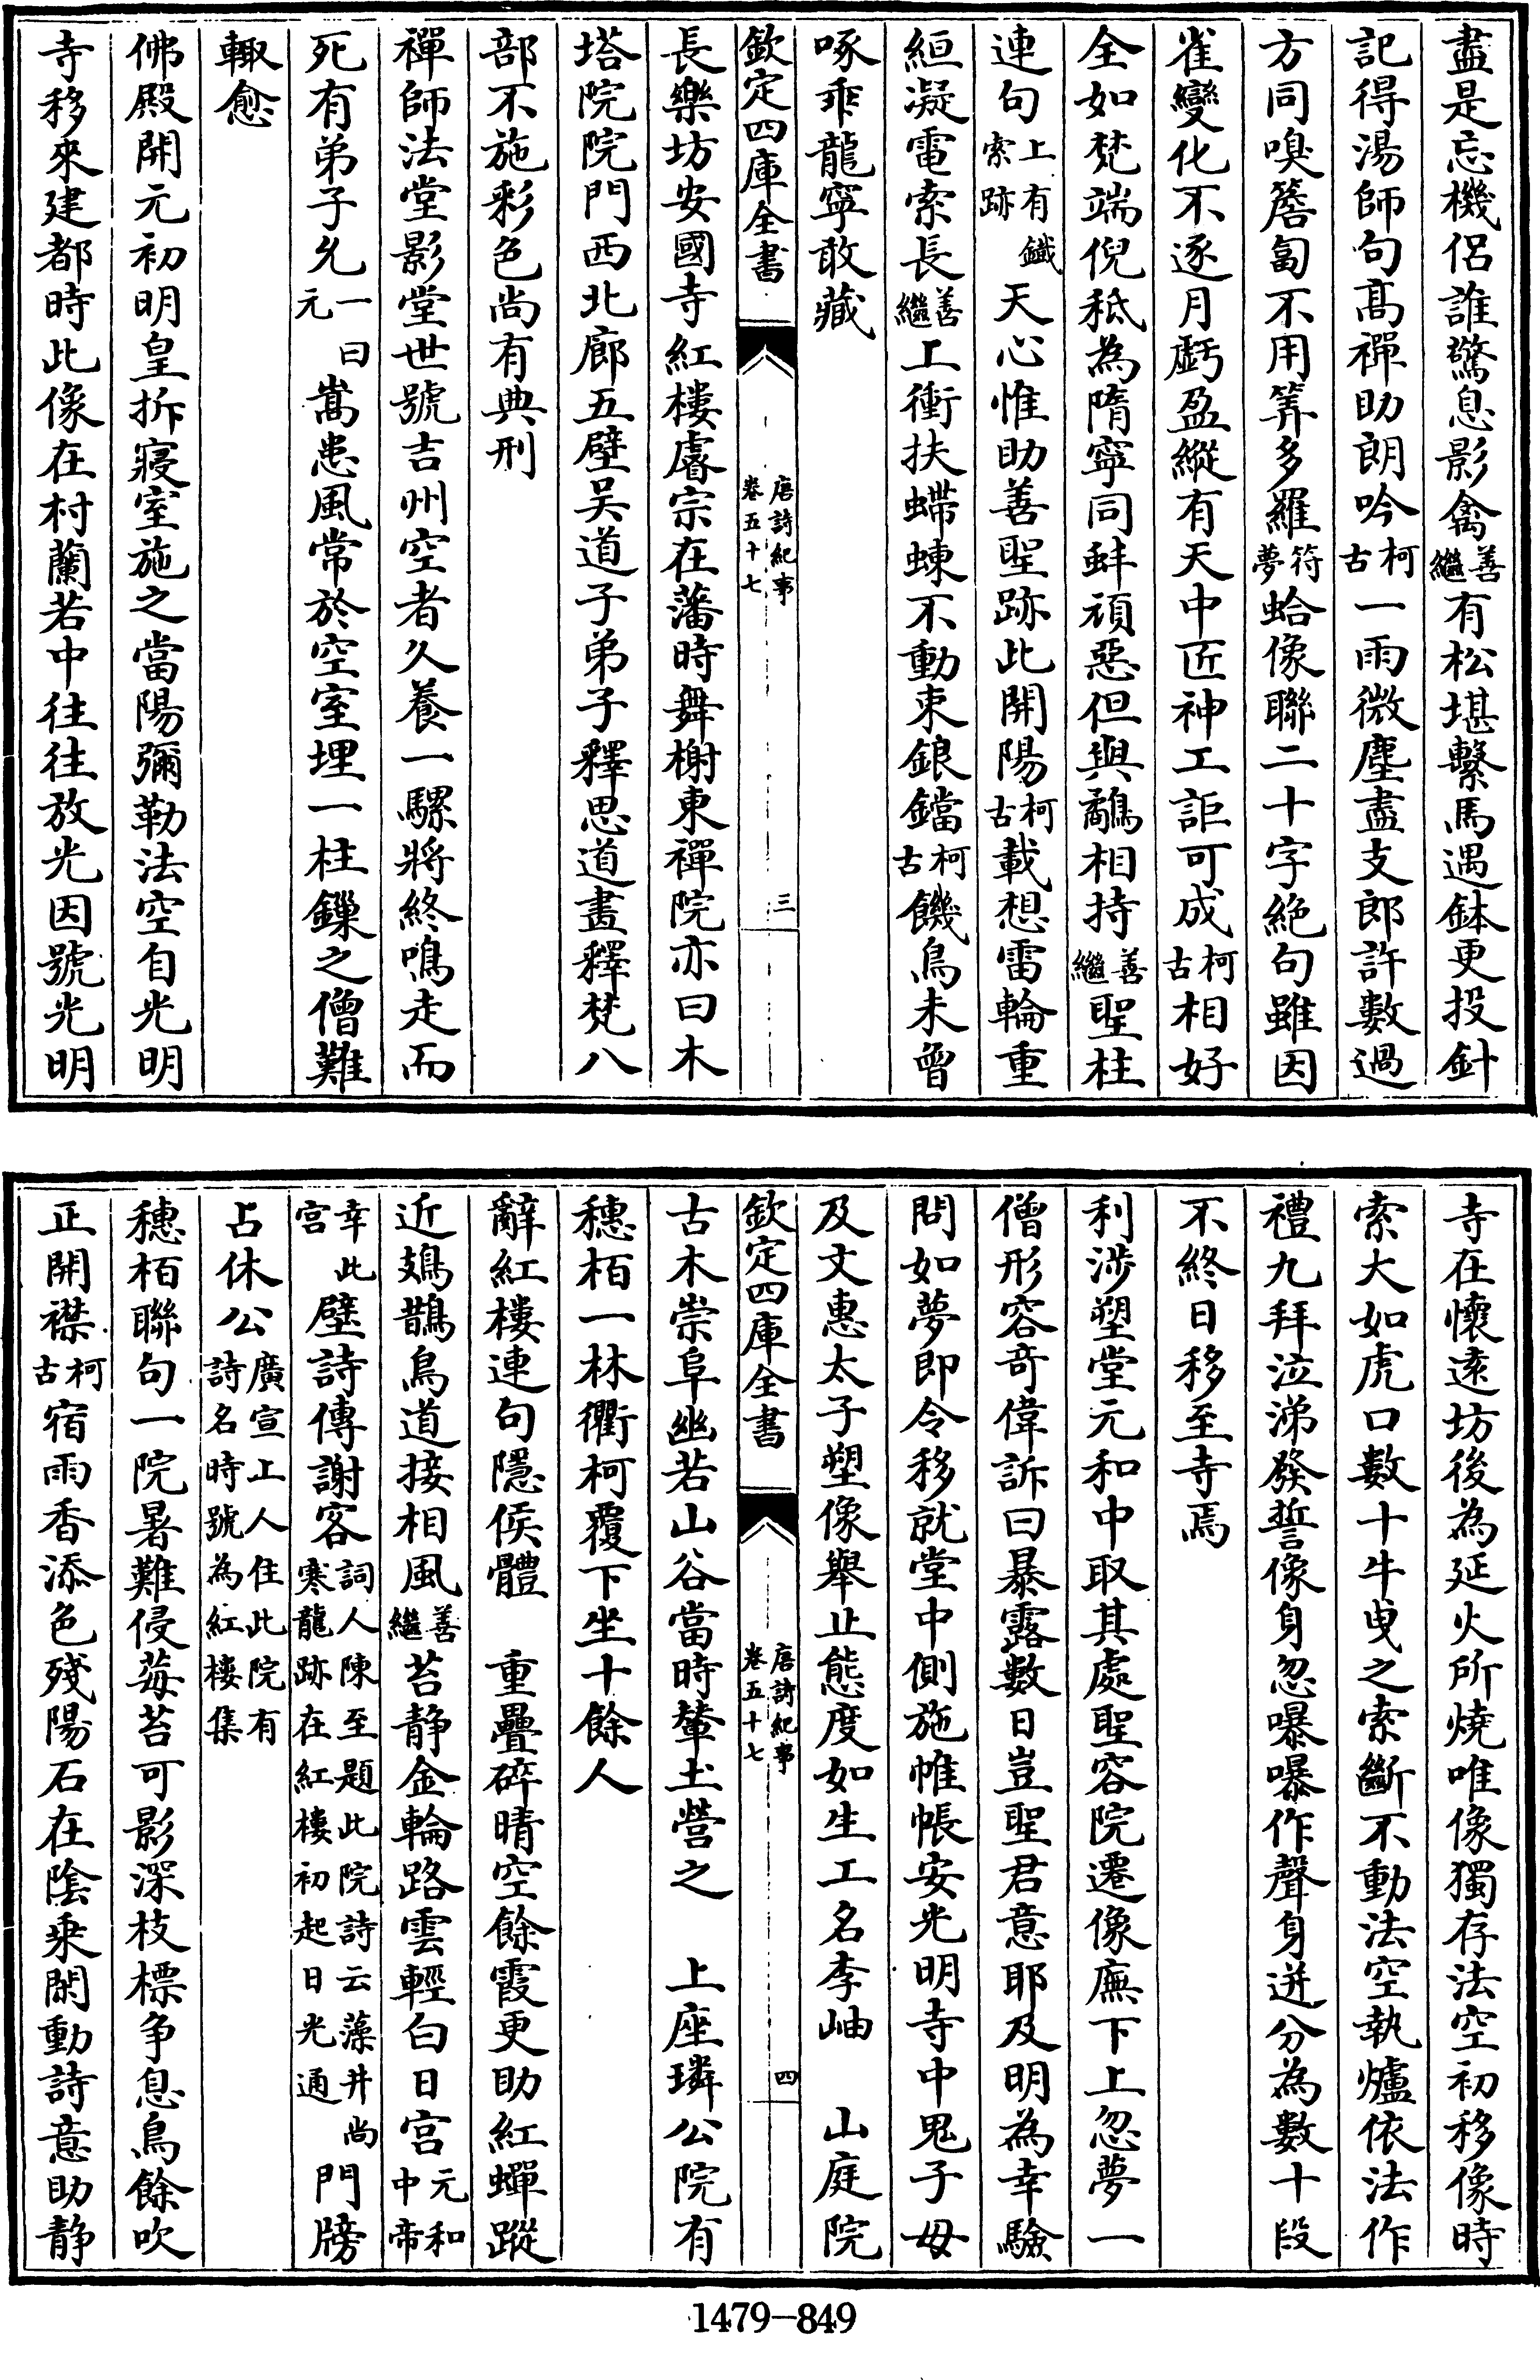 盡是忘機侶誰驚息影禽善繼有松堪繫馬遇鉢更投針
記得湯師句髙禪助朗吟柯古一雨微塵盡支郎許數過
方同嗅簷匐不用筭多羅符夢蛤像聯二十字絶句雖因
雀變化不逐月虧盈縱有天中匠神工詎可成柯古相好
全如梵端倪秪為隋寧同蚌頑惡但與鷸相持善繼聖柱
連句上有鐵索跡天心惟助善聖跡此開陽柯古載想雷輪重
絙凝電索長善繼上衝扶螮蝀不動束鋃鐺柯古饑鳥未曾
啄乖龍寧敢藏
欽定四庫全書
唐詩紀事
卷五十七
三
長樂坊安國寺紅樓睿宗在藩時舞榭東禪院亦曰木
塔院院門西北廊五壁吴道子弟子釋思道畫釋梵八
部不施彩色尚有典刑
禪師法堂影堂世號吉州空者久養一騾將終鳴走而
死有弟子允一曰元嵩患風常於空室埋一柱鏁之僧難
輙愈
佛殿開元初明皇拆寢室施之當陽彌勒法空自光明
寺移來建都時此像在村蘭若中往往放光因號光明
寺在懷逺坊後為延火所燒唯像獨存法空初移像時
索大如虎口數十牛曳之索斷不動法空執爐依法作
禮九拜泣涕發誓像身忽曝曝作聲身迸分為數十段
不終日移至寺焉
利涉塑堂元和中取其處聖容院遷像廡下上忽夢一
僧形容竒偉訴曰暴露數日豈聖君意耶及明為幸驗
問如夢即令移就堂中側施帷帳安光明寺中鬼子母
及文惠太子塑像舉止態度如生工名李岫　山庭院
欽定四庫全書
唐詩紀事
卷五十七
四
古木崇阜幽若山谷當時輦土營之　上座璘公院有
穗栢一林衢柯覆下坐十餘人
辭紅樓連句隱侯體　重疊碎晴空餘霞更助紅蟬蹤
近鳷鵲鳥道接相風善繼苔静金輪路雲輕白日宫元和中帝
幸此宫壁詩傳謝客詞人陳至題此院詩云藻井尚寒龍跡在紅樓初起日光通門牓
占休公廣宣上人住此院有詩名時號為紅樓集
穗栢聯句一院暑難侵莓苔可影深枝標争息鳥餘吹
正開襟柯古宿雨香添色殘陽石在隂乘閑動詩意助静
1479-849